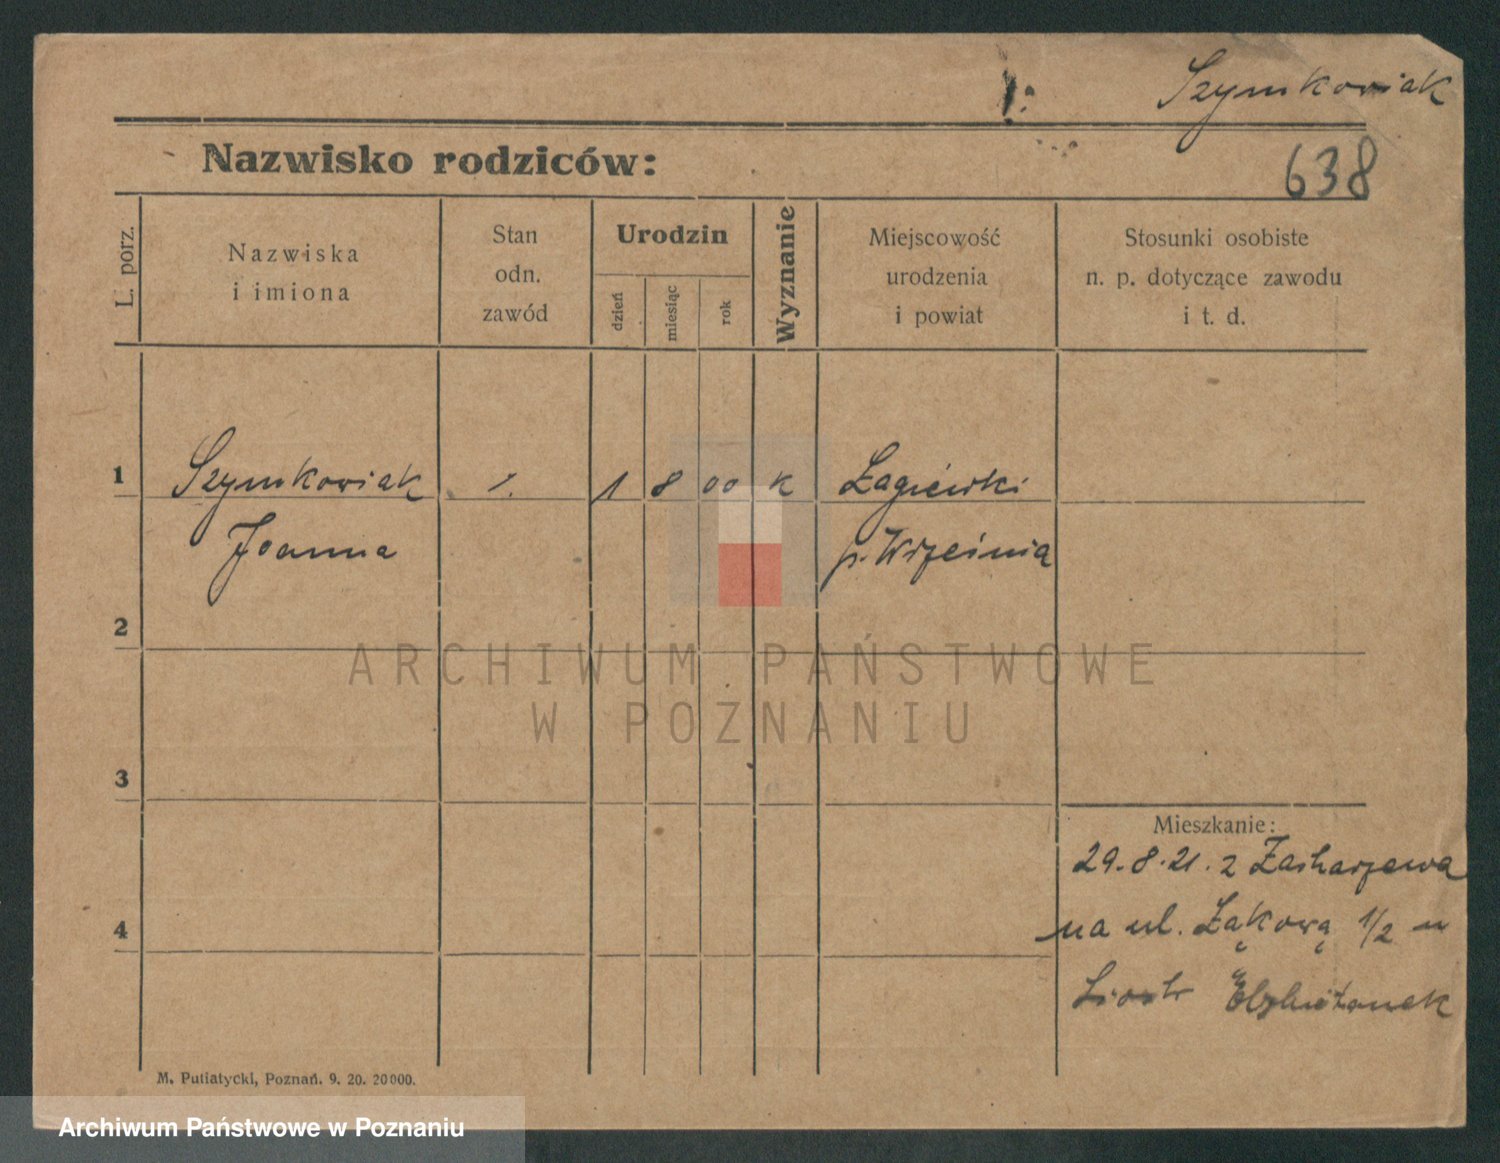 Szymkowiak
Nazwisko rodziców:
638
L. porz.
Nazwiska
i imiona
Stan
odn.
zawód
Urodzin
dzień
miesiąc
rok
Wyznanie
Miejscowość
urodzenia
i powiat
Stosunki osobiste
n. p. dotyczące zawodu
i t. d.
1 Szymkowiak 1 8 00 k
Joanna p. Września
2
ARCHIWUM PAŃSTWOWE
W POZNANIU
3
4
Mieszkanie:
29.8.21. z
na ul. Łąkową 1/2 u
M. Putiatycki, Poznań. 9. 20. 20000.
Archiwum Państwowe w Poznaniu